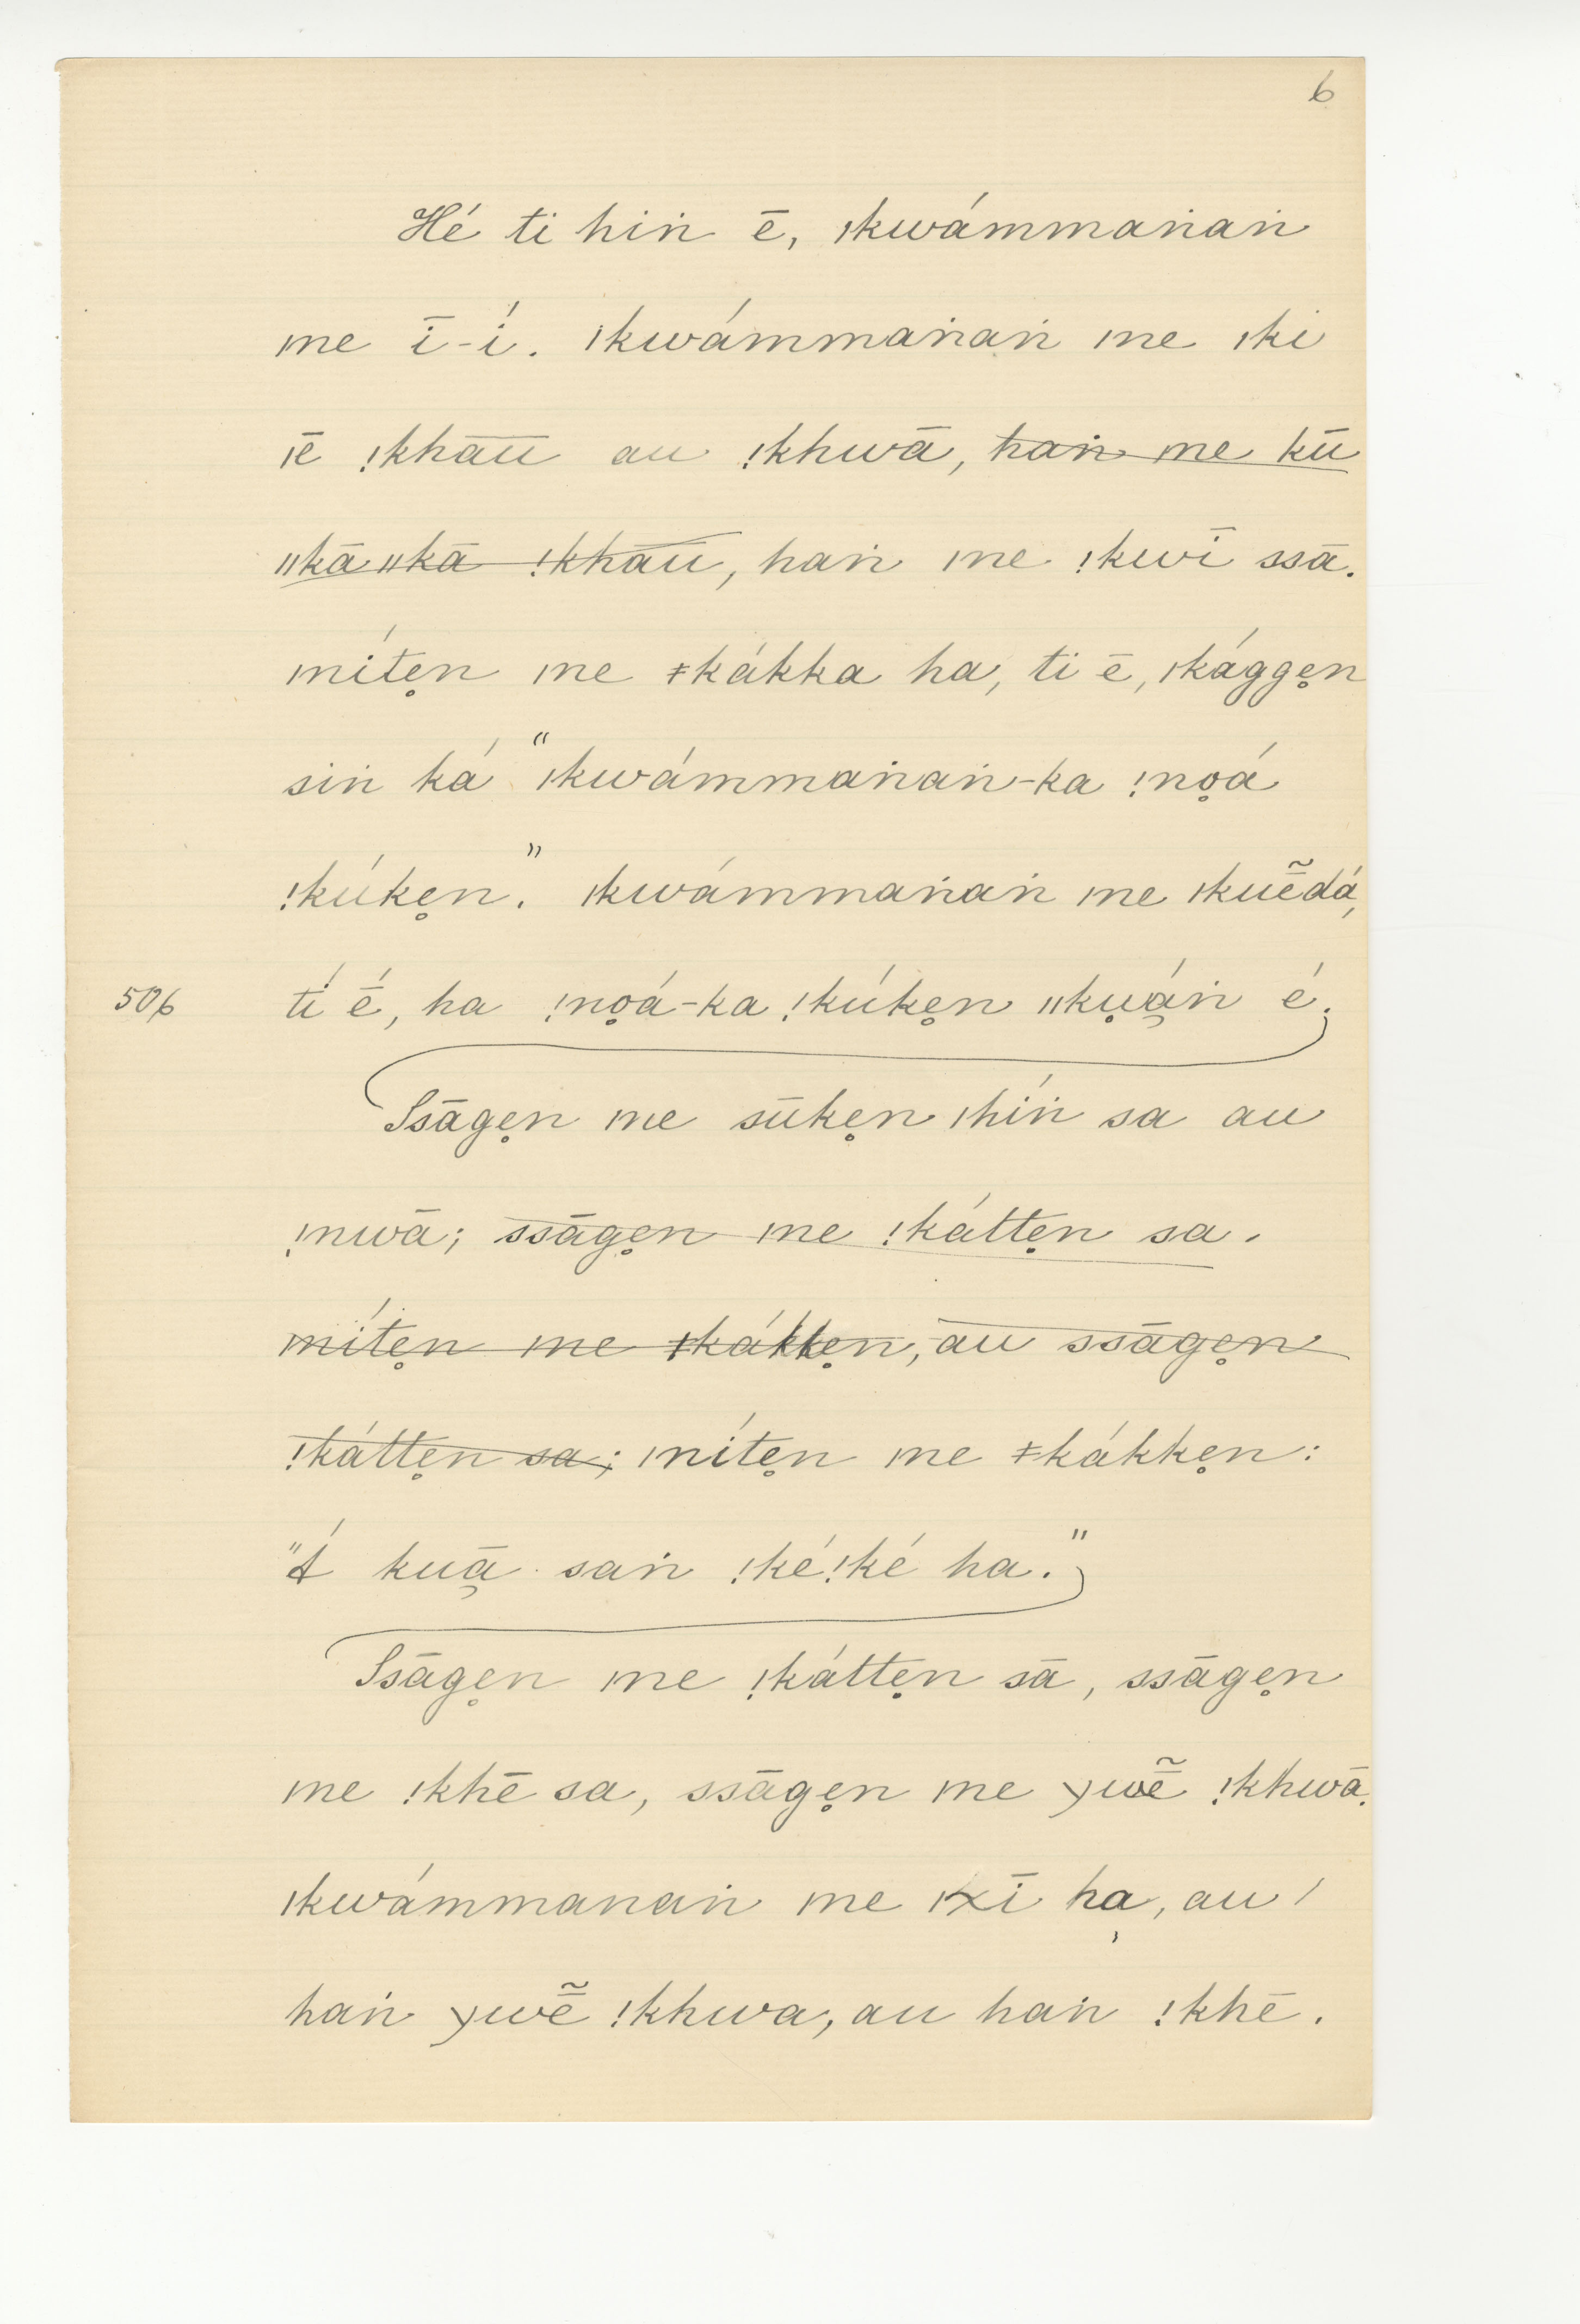 6
Hé ti hiṅ ē, ǀkwámmaṅaṅ
ǀne ī-í. ǀkwámmaṅaṅ ǀne ǀki
ǀē !khāū au !khwā, haṅ ǀne kū
ǁkāǁkā !khāū, haṅ ǀne !kwī ssā.
ǀníte̥n ǀne ǂkákka ha, ti ē, ǀkágge̥n
siṅ ká “ǀkwámmaṅaṅ-ka !no̥á
!kúke̥n.” ǀkwámmaṅaṅ ǀne ǀkuḗ̃dá,
506 tí ḗ, ha !no̥á-ka !kúke̥n ǁku̥ą́ṅ é.
Ssāge̥n ǀne sūke̥n ǀhíṅ sa au
!nwā; ssāge̥n ǀne !kátte̥n sa.
ǀníte̥n ǀne ǂkákke̥n, au ssāge̥n
!kátte̥n sa; ǀníte̥n ǀne ǂkákke̥n:
"Á kuą̄ saṅ !ké!ké ha."
Ssāge̥n ǀne !kátte̥n sā, ssāge̥n
ǀne !khē sa, ssāge̥n ǀne ywẽ̄ !khwā.
ǀkwámmanaṅ ǀne ǀxī ha̦, au
haṅ ywẽ̄ !khwa, au haṅ !khē.